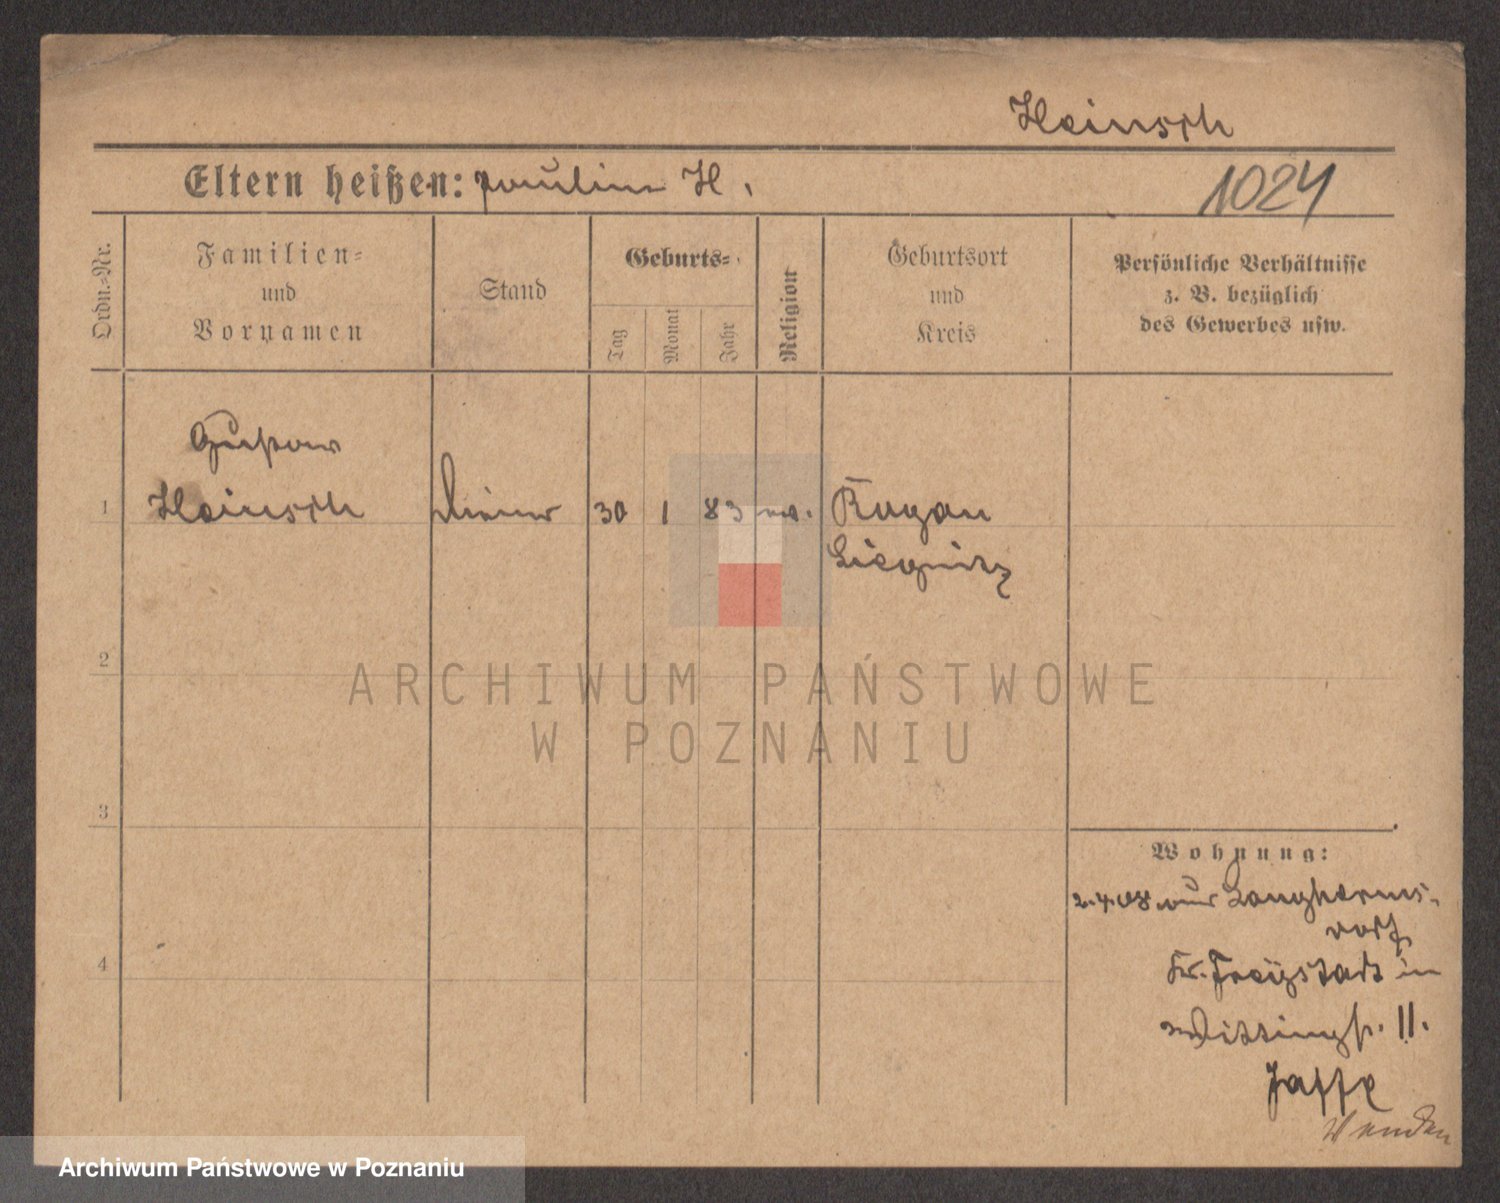 Heinsch
Eltern heißen: Pauline H.
1024
Ordn.-Nr.
Familien-
und
Vornamen
Stand
Geburts-
Tag
Monat
Jahr
Religion
Geburtsort
und
Kreis
Persönliche Verhältnisse
z. B. bezüglich
des Gewerbes usw.
Gustav
1 Heinsch Diener 30 1 83 ev.
Liegnitz
2
ARCHIWUM PAŃSTWOWE
W POZNANIU
3
Wohnung:
2.4.08 Langherms-
dorf
Kr. Freystadt in
11.
4
Jaffe
Wenden
Archiwum Państwowe w Poznaniu